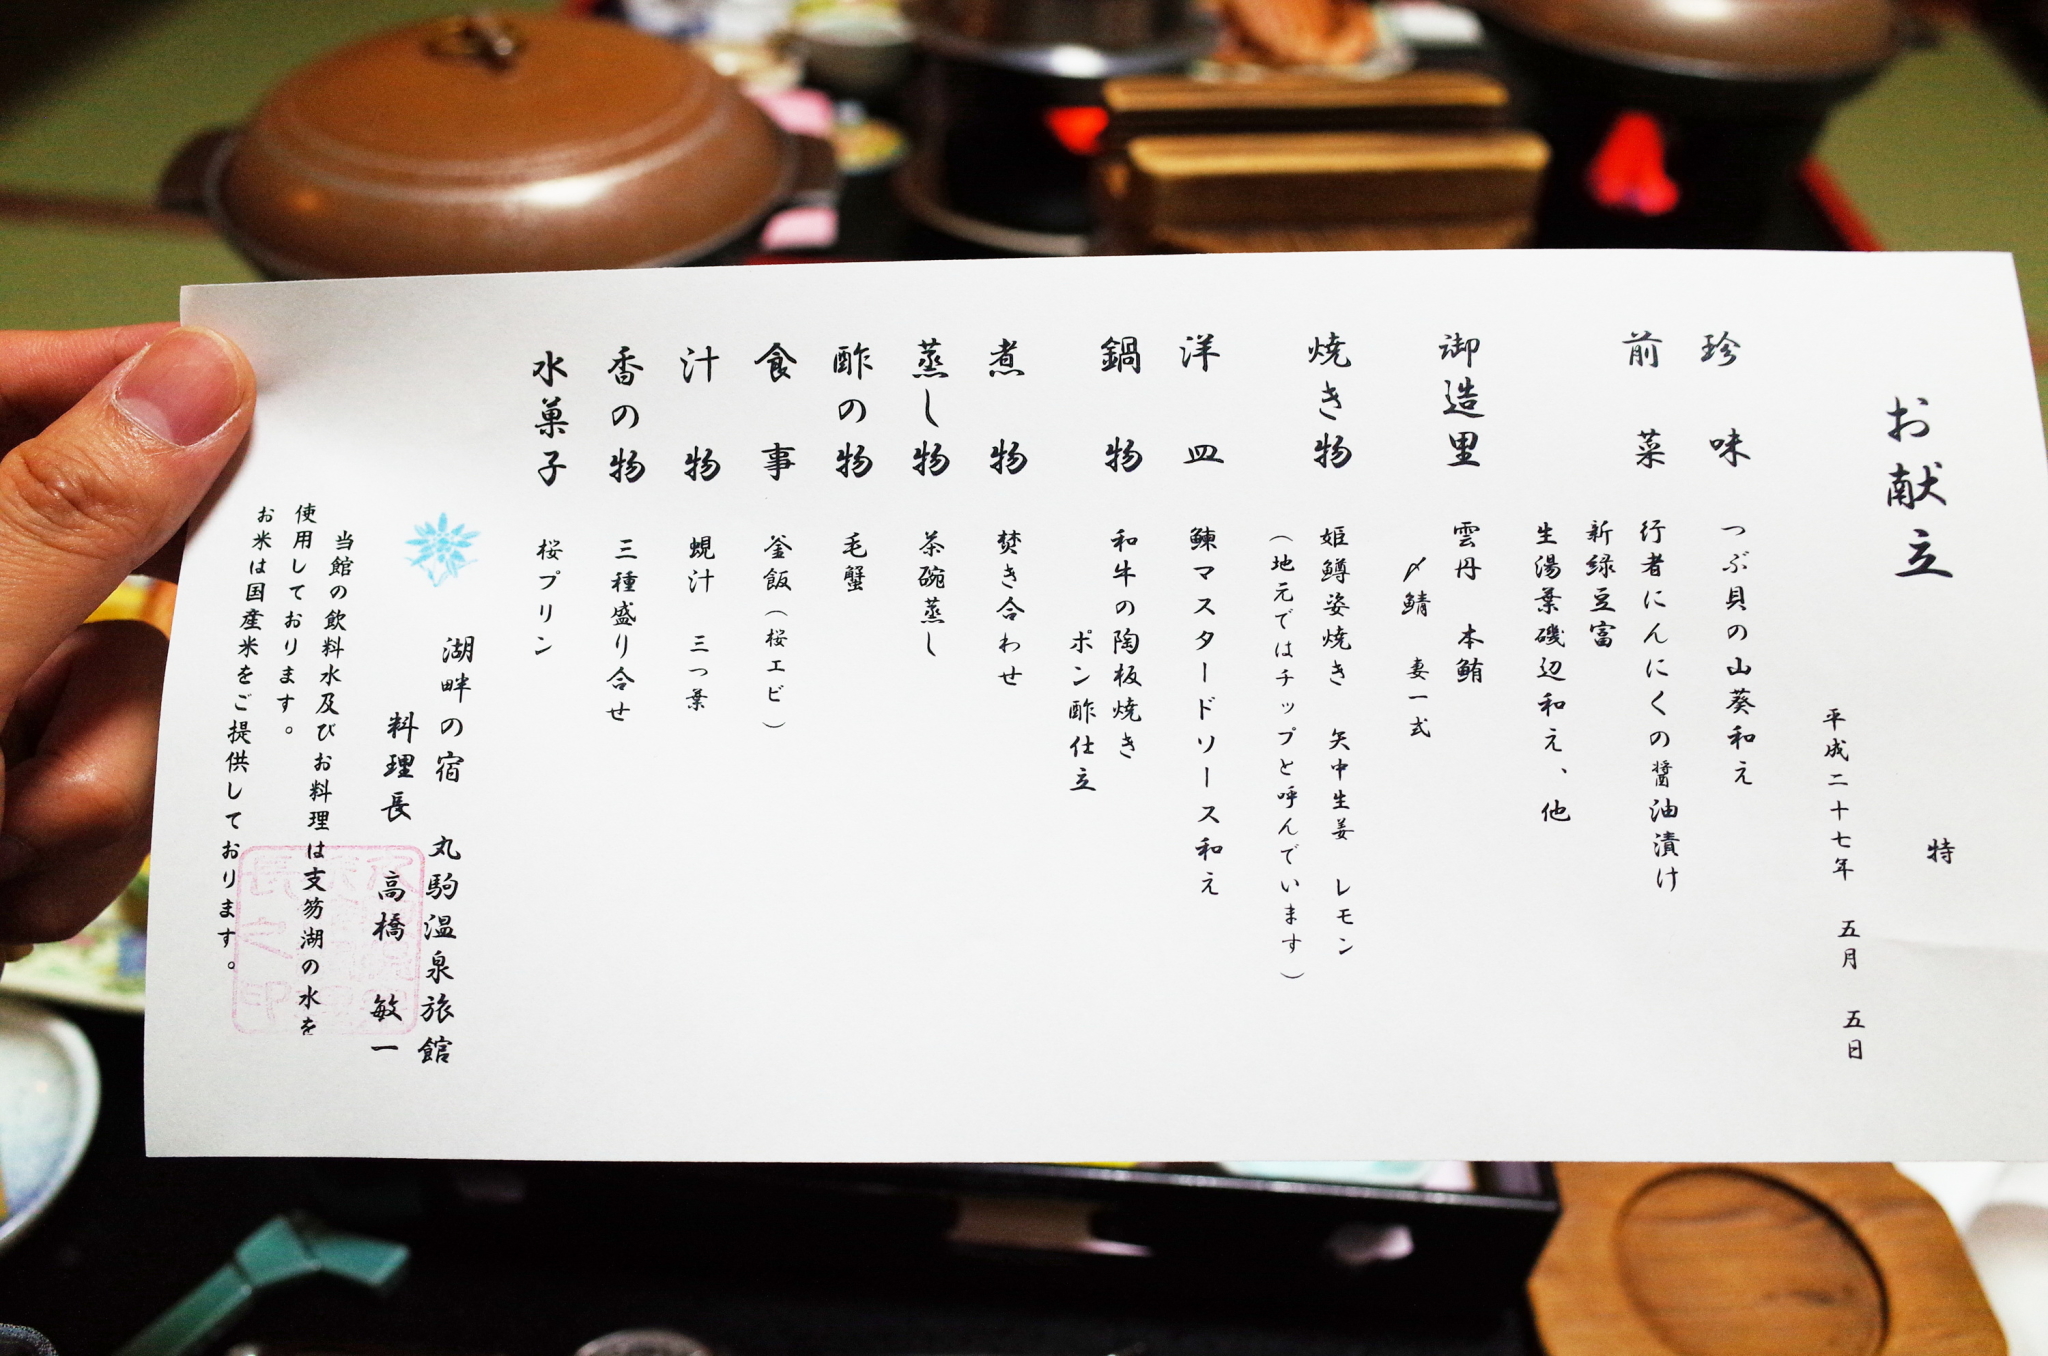 お献立
特
平成二十七年 五月 五日
珍味 つぶ貝の山葵和え
前菜 行者にんにくの醤油漬け
新緑豆富
生湯葉磯辺和え、他
御造里 雲丹 本鮪
〆鯖 妻一式
焼き物 姫鱒姿焼き 矢中生姜 レモン
（地元ではチップと呼んでいます）
洋皿 鰊マスタードソース和え
鍋物 和牛の陶板焼き
ポン酢仕立
煮物 焚き合わせ
蒸し物 茶碗蒸し
酢の物 毛蟹
食事 釜飯（桜エビ）
汁物 蜆汁 三つ葉
香の物 三種盛り合せ
水菓子 桜プリン
湖畔の宿 丸駒温泉旅館
料理長 高橋 敏一
当館の飲料水及びお料理は支笏湖の水を
使用しております。
お米は国産米をご提供しております。